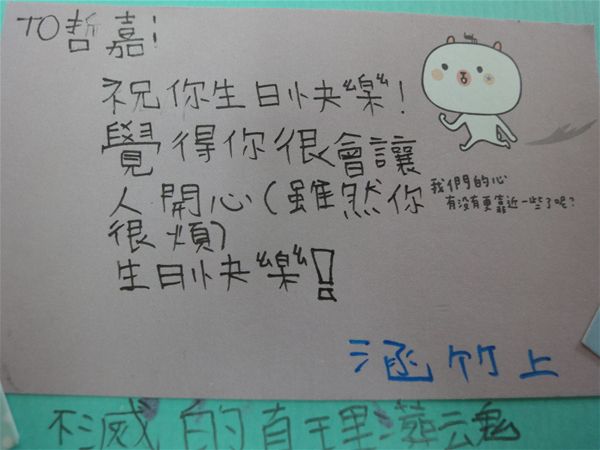 TO哲嘉:
祝你生日快樂!
覺得你很會讓
人開心(雖然你
很煩)
生日快樂!
我們的心
有没有更靠近一些了呢?
涵竹上
不滅的真理
魂